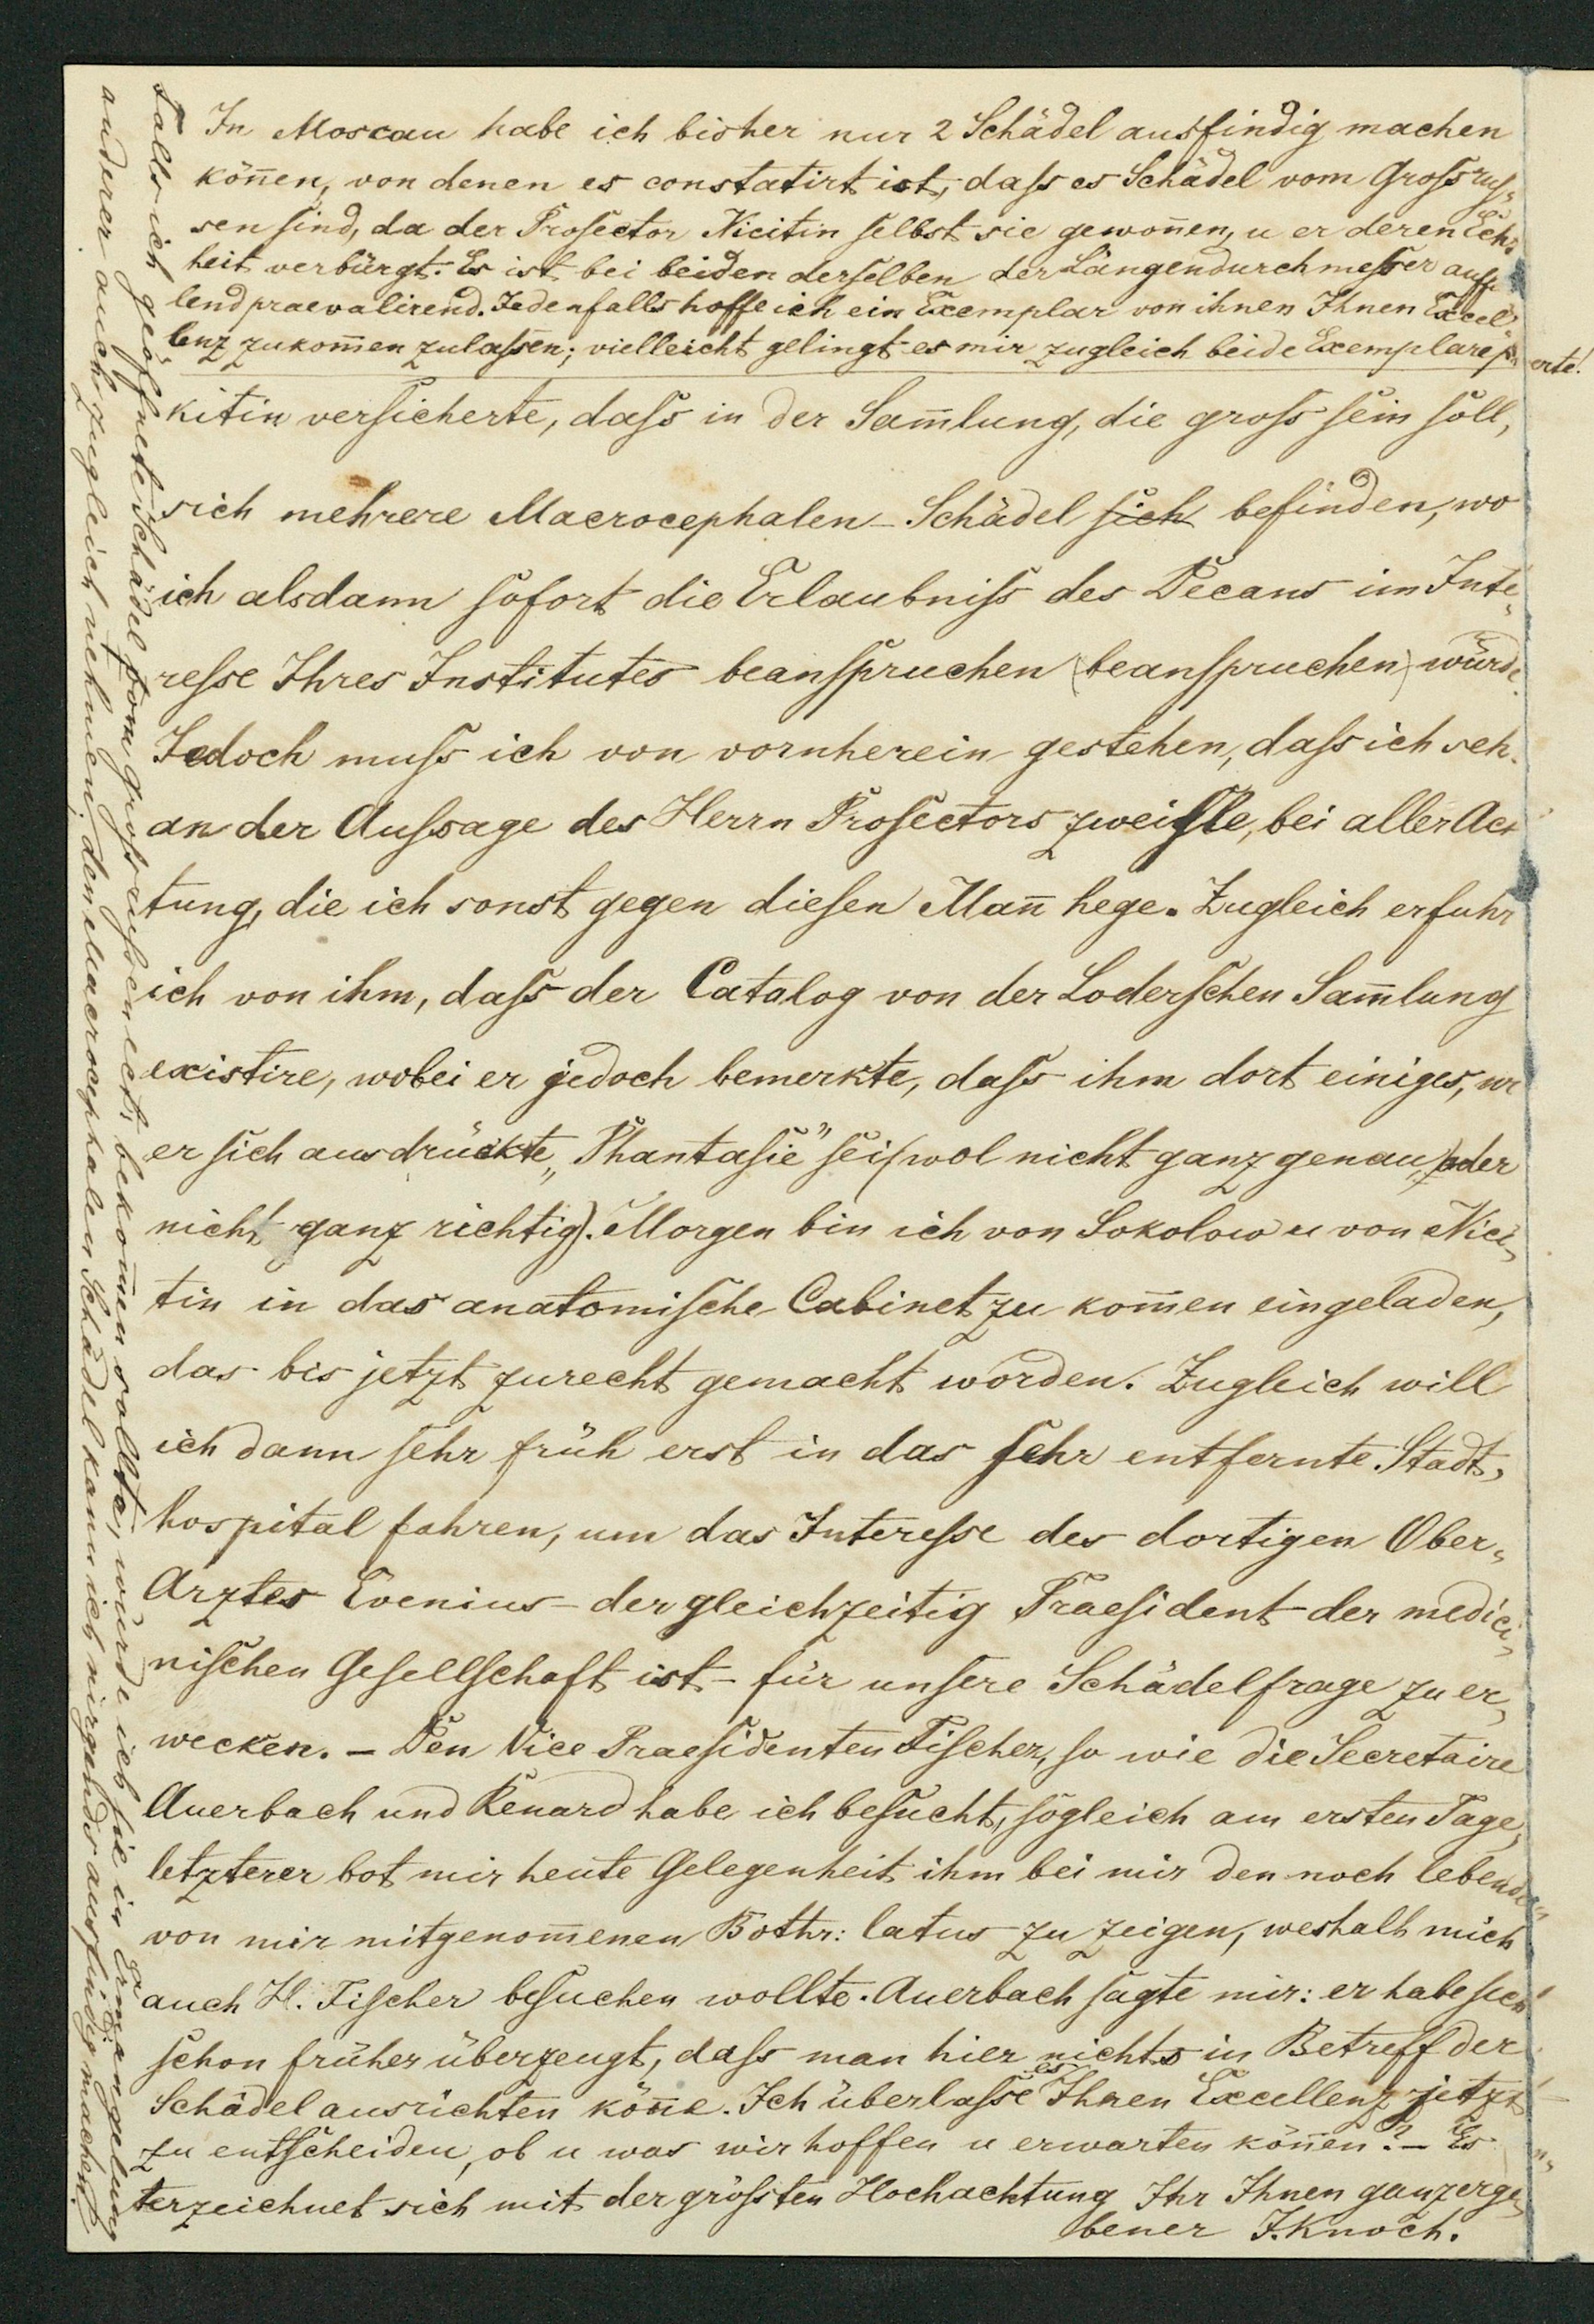 In Moscau habe ich bisher nur 2 Schädel ausfindig machen
kön̄en, von denen es constatirt ist, dass es Schädel vom Grossrus-
sen sind, da der Prosector Nicitin selbst sie gewon̄en, u er deren Ech
heit verbürgt. Es ist bei beiden derselben der Längendurchmesser auff
lend praevalirend. Jedenfalls hoffe ich ein Exemplar von ihnen Ihnen Excel-
lenz zukom̄en zulassen; vielleicht gelingt es mir zugleich beide Exemplare
erte!
kitin versicherte, dass in der Sam̄lung, die gross sein soll,
sich mehrere Macrocephalen-Schädel sich befinden, wo
ich alsdann sofort die Erlaubniss des Decans im Inte-
resse Ihres Institutes beanspruchen (beanspruchen) würde.
Jedoch muss ich von vornherein gestehen, dass ich seh
an der Aussage des Herrn Prosectors zweifle, bei aller Ach
tung, die ich sonst gegen diesen Man̄ hege. Zugleich erfuhr
ich von ihm, dass der Catalog von der Loderschen Sam̄lung
existire, wobei er jedoch bemerkte, dass ihm dort einiges, w
er sich ausdrückte „Phantasie" sei (wol nicht ganz genau, oder
nicht ganz richtig). Morgen bin ich von Sokolow u von Nici-
tin in das anatomische Cabinet zu kom̄en eingeladen,
das bis jetzt zurecht gemacht worden. Zugleich will
ich dann sehr früh erst in das sehr entfernte Stadt-
hospital fahren, um das Interesse des dortigen Ober-
Arztes Evenius - der gleichzeitig Praesident der medici-
nischen Gesellschaft ist - für unsere Schädelfrage zu er-
wecken. - Den Vice Praesidenten Fischer, so wie die Secretaire
Auerbach und Renard habe ich besucht, sogleich am ersten Tage,
letzterer bot mir heute Gelegenheit ihm bei mir den noch lebenden
von mir mitgenom̄enen Bothr: latus zu zeigen, weshalb mich
auch H. Fischer besuchen wollte. Auerbach sagte mir: er habe sich
schon früher überzeugt, dass man hier nichts in Betreff der
Schädel ausrichten kön̄e. Ich überlasse es Ihnen Excellenz jetzt
zu entscheiden, ob u was wir hoffen u erwarten kön̄en? - Es
terzeichnet sich mit der grössten Hochachtung Ihr Ihnen ganz erge-
bener J. Knoch.
Falls ich geöffnete Schädel vom grossrussen etc. bekom̄en sollte, würde ich sie in Ermangelung
anderer auch zugleich nehmen; den Macrocephalen Schädel kann ich nirgends ausfindig machen.